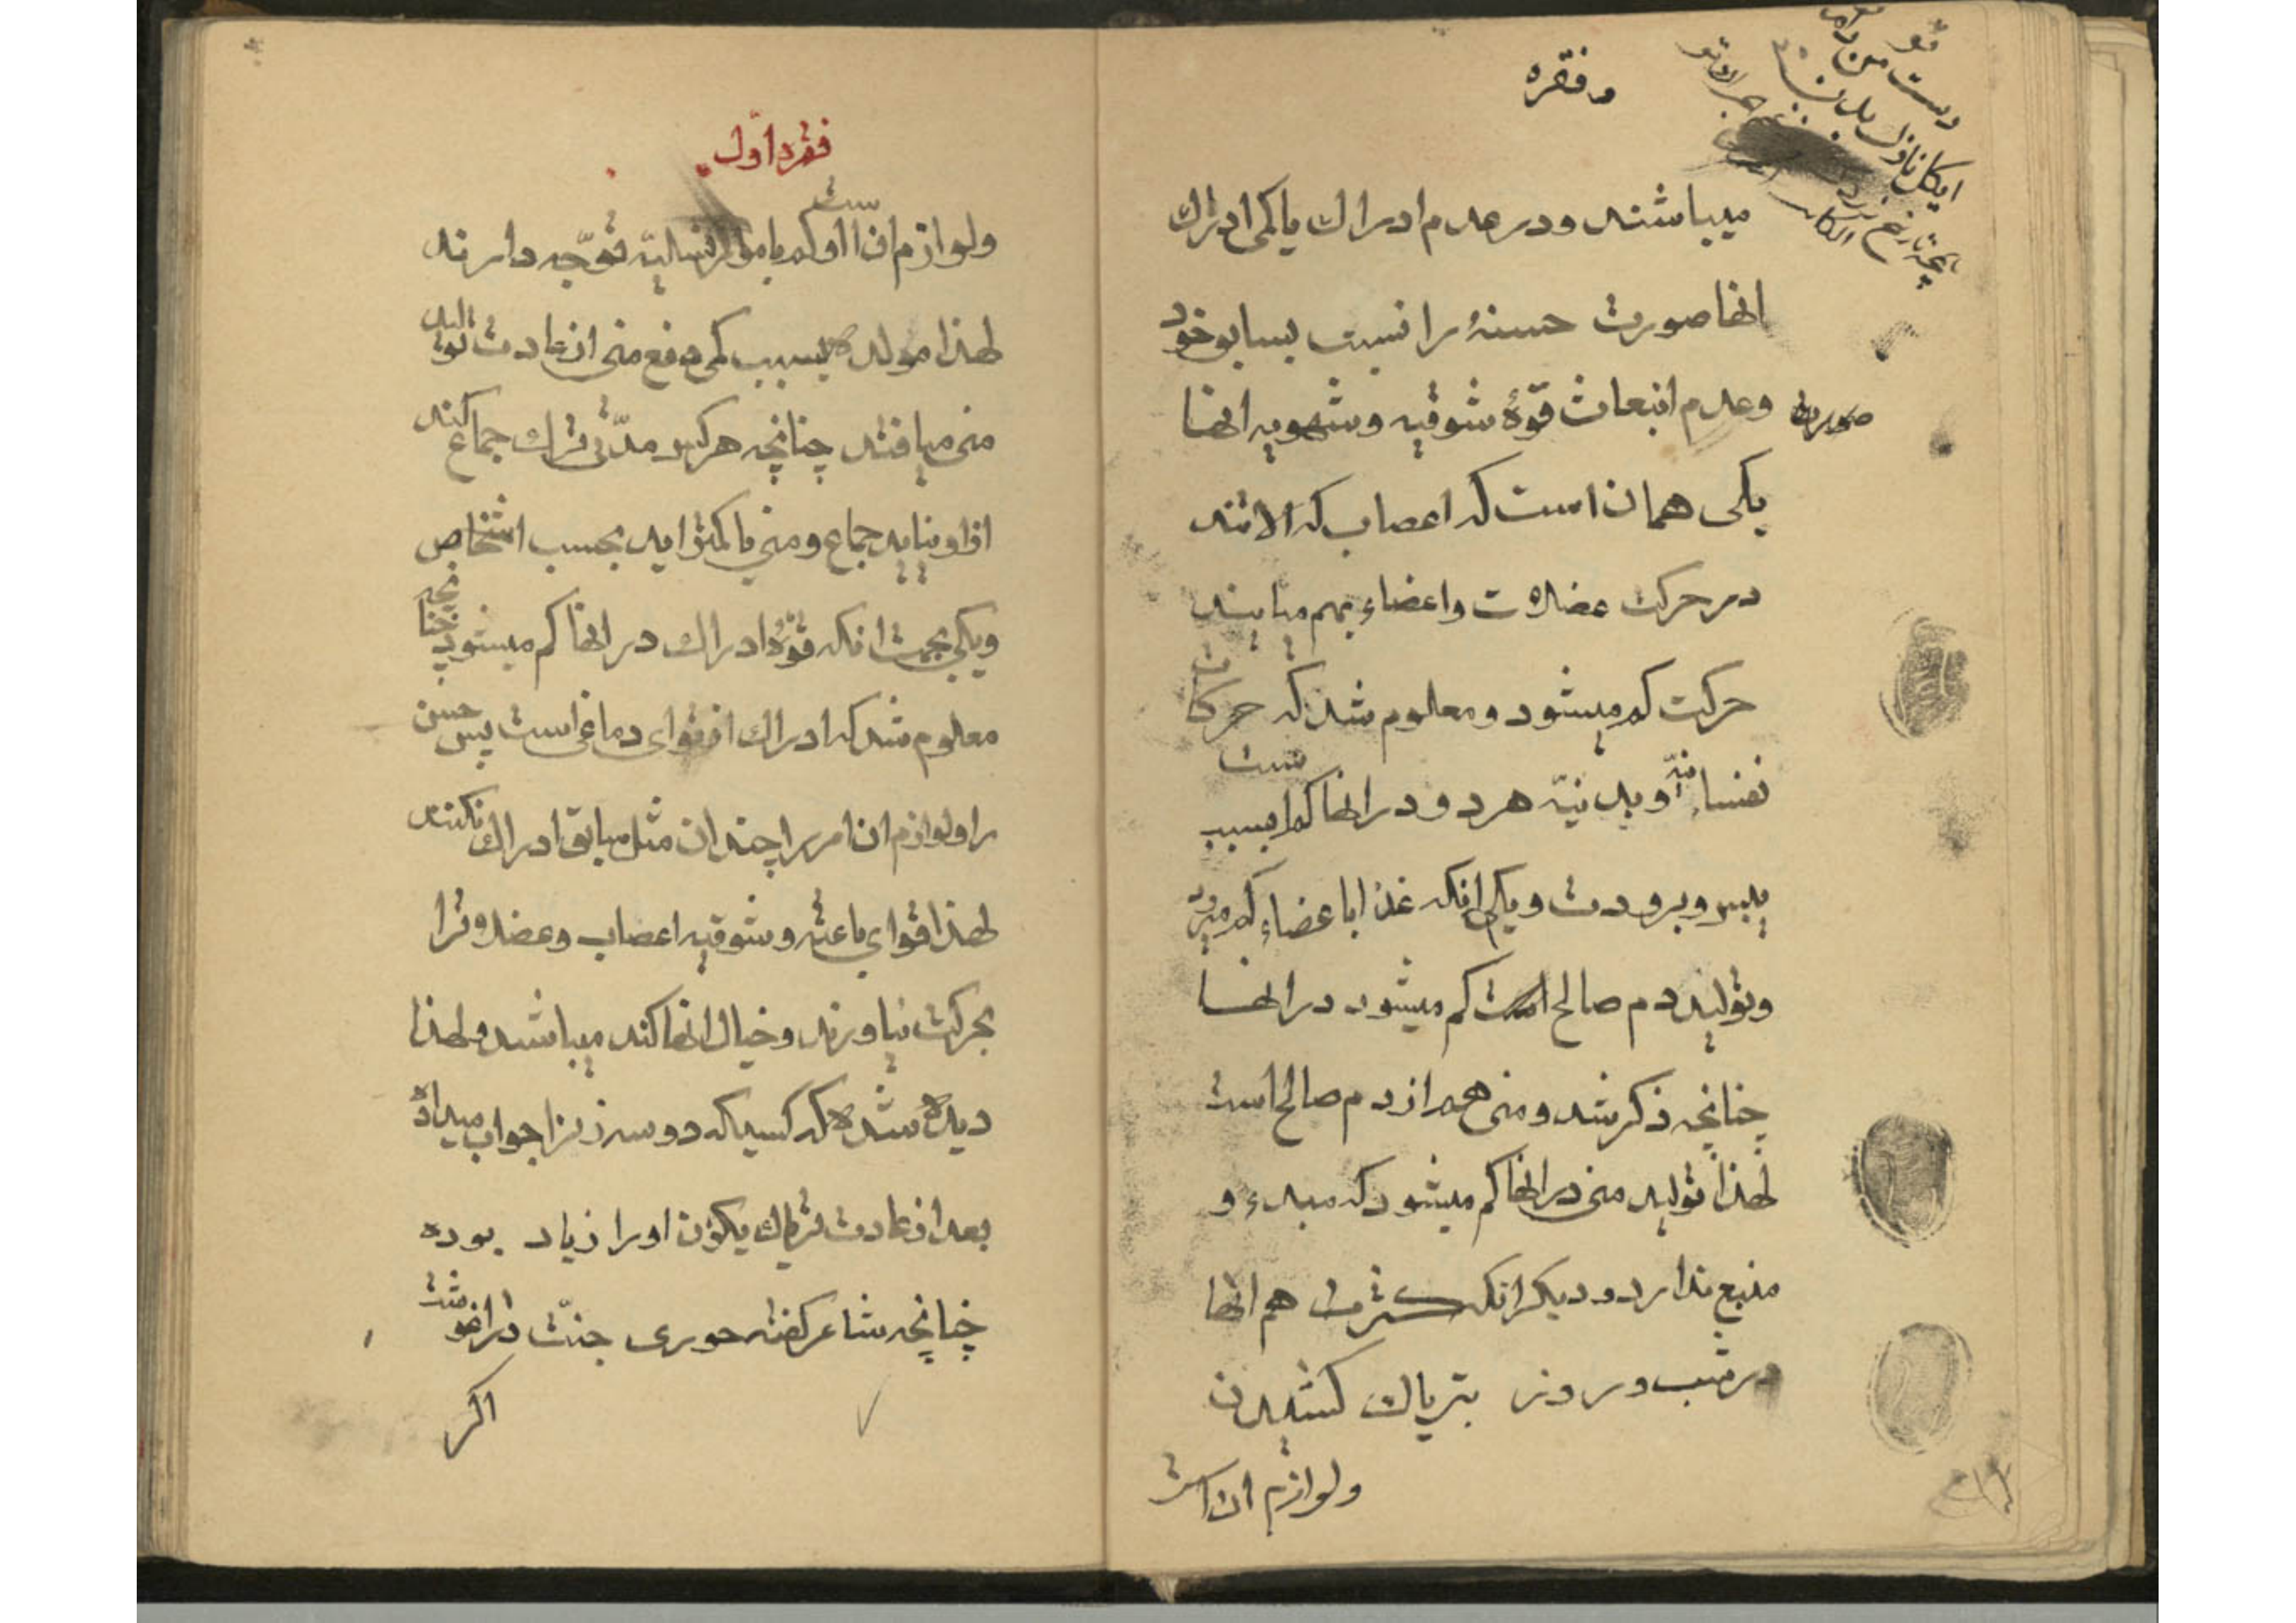 و فقره
میباشند و در عدم ادراك یا کمی ادراك
انها صورت حسنهٔ را نسبت بسابق خود
وعدم انبعاث قوّهٔ شوقیه و شهویه انها
صورت
یکی همان است که اعصاب که الاتند
در حرکت عضلات و اعضاء بهم میایند
حرکت کم میشود و معلوم شد که حرکات
نفسانیّه و بدنیّه هر دو در انها کم است بسبب
یبس و برودت و یکی انکه غذا باعضاء کم میرود
و تولید دم صالح است کم میشود در انها
چنانچه ذکر شد و منی هم از دم صالح است
لهذا تولید منی در انها کم میشود که مبدء و
منبع ندارد و دیگر انکه کثرت هم انها
در شب و روز بتریاك کشیدن
و لوازم ان است
فقره اوّل
و لوازم ان است و کم بامور نسائیّه توجّه دارند
لهذا مولد بسبب کمی دفع منی از عادت تولید
منی میافتد چنانچه هرکس مدّتی ترك جماع کند
از او نیاید جماع و منی یا کمتر اید بحسب اشخاص
و یکی بجهت انکه قوّهٔ ادراك در انها کم میشود چنانچه
معلوم شد که ادراك از قوای دماغی است پس حسن
را و لوازم ان امر را چندان مثل سابق ادراك نکنند
لهذا قوای باعثه و شوقیه اعصاب و عضلاترا
بحرکت نیاورند و خیال انها کند میباشد و لهذا
دیده شده که کسیکه دو سه زنرا جواب میداده
بعد از عادت بتریاك یکزن او را زیاد بوده
چنانچه شاعر گفته حوری جنّت در اغوشت
اکر